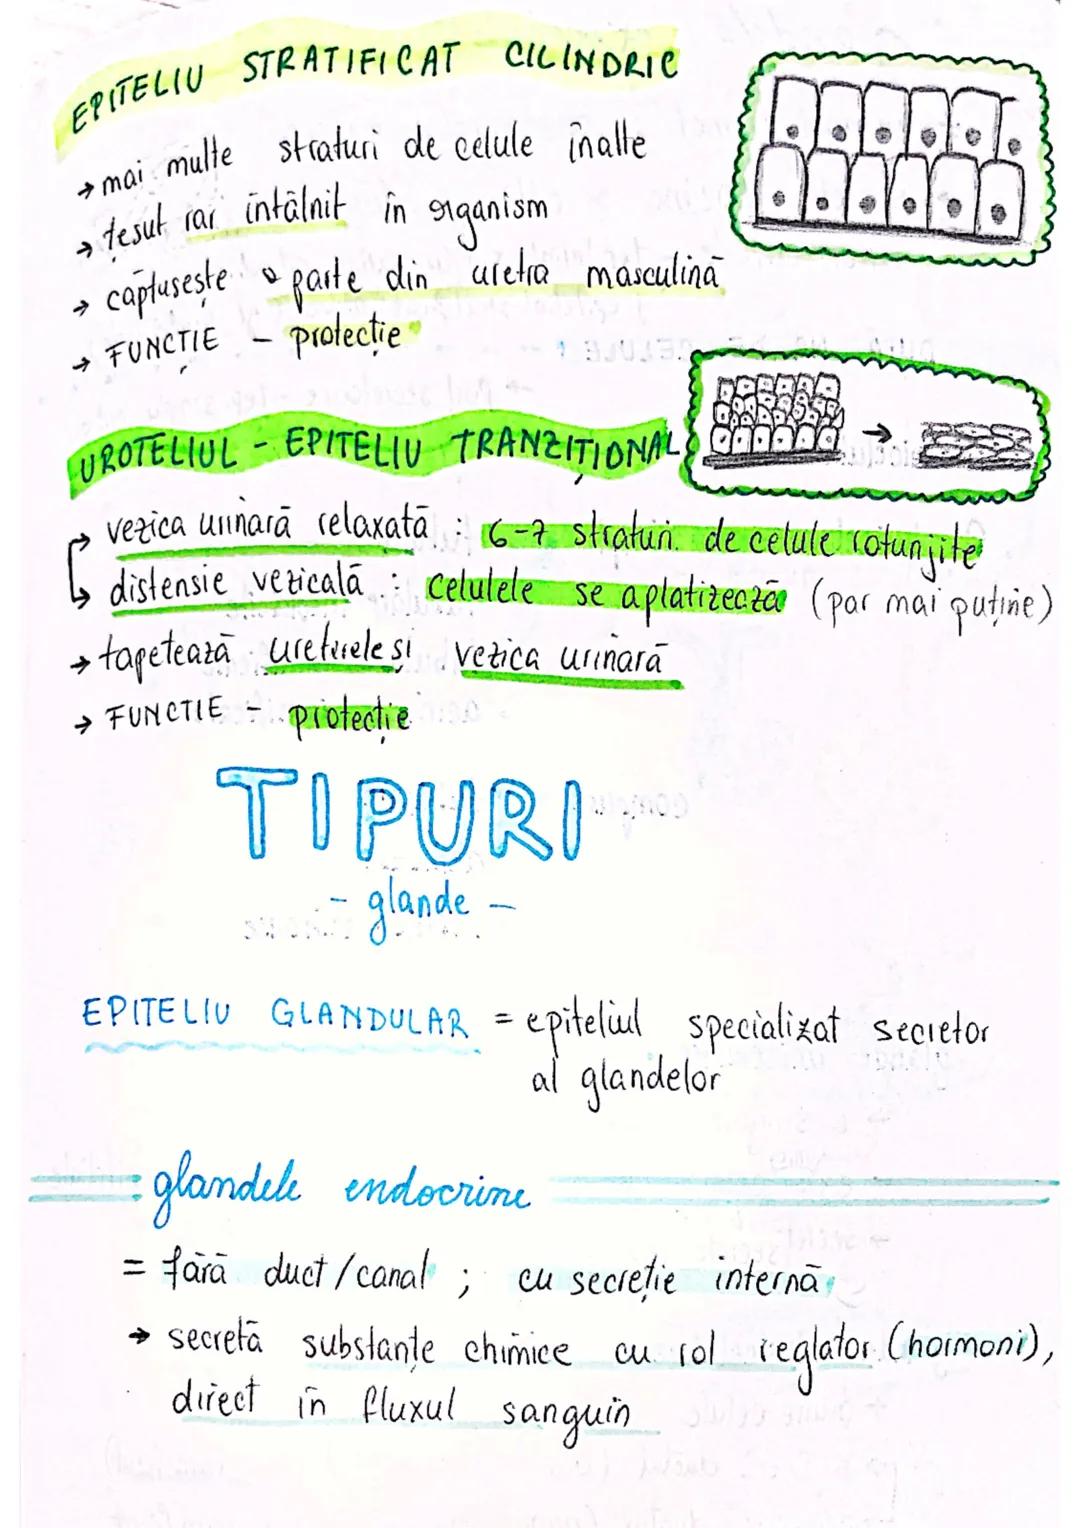 EPITELIU STRATIFICAT CILINDRIC
→ mai multe straturi de celule înalte
→ țesut rar întâlnit în organism
→ căptușește o parte din uretra masculină
→ FUNCȚIE - protecție
UROTELIUL - EPITELIU TRANZIȚIONAL
→ vezica urinară relaxată : 6-7 straturi de celule rotunjite
→ distensie vezicală : celulele se aplatizează (par mai puține)
→ tapetează ureterele și vezica urinară
→ FUNCTIE - protecție
TIPURI
- glande -
EPITELIU GLANDULAR = epiteliul specializat secretor
al glandelor
glandele endocrine
= fără duct/canal ; cu secreție internă
→ secretă substanțe chimice cu rol reglator (hormoni),
direct în fluxul sanguin